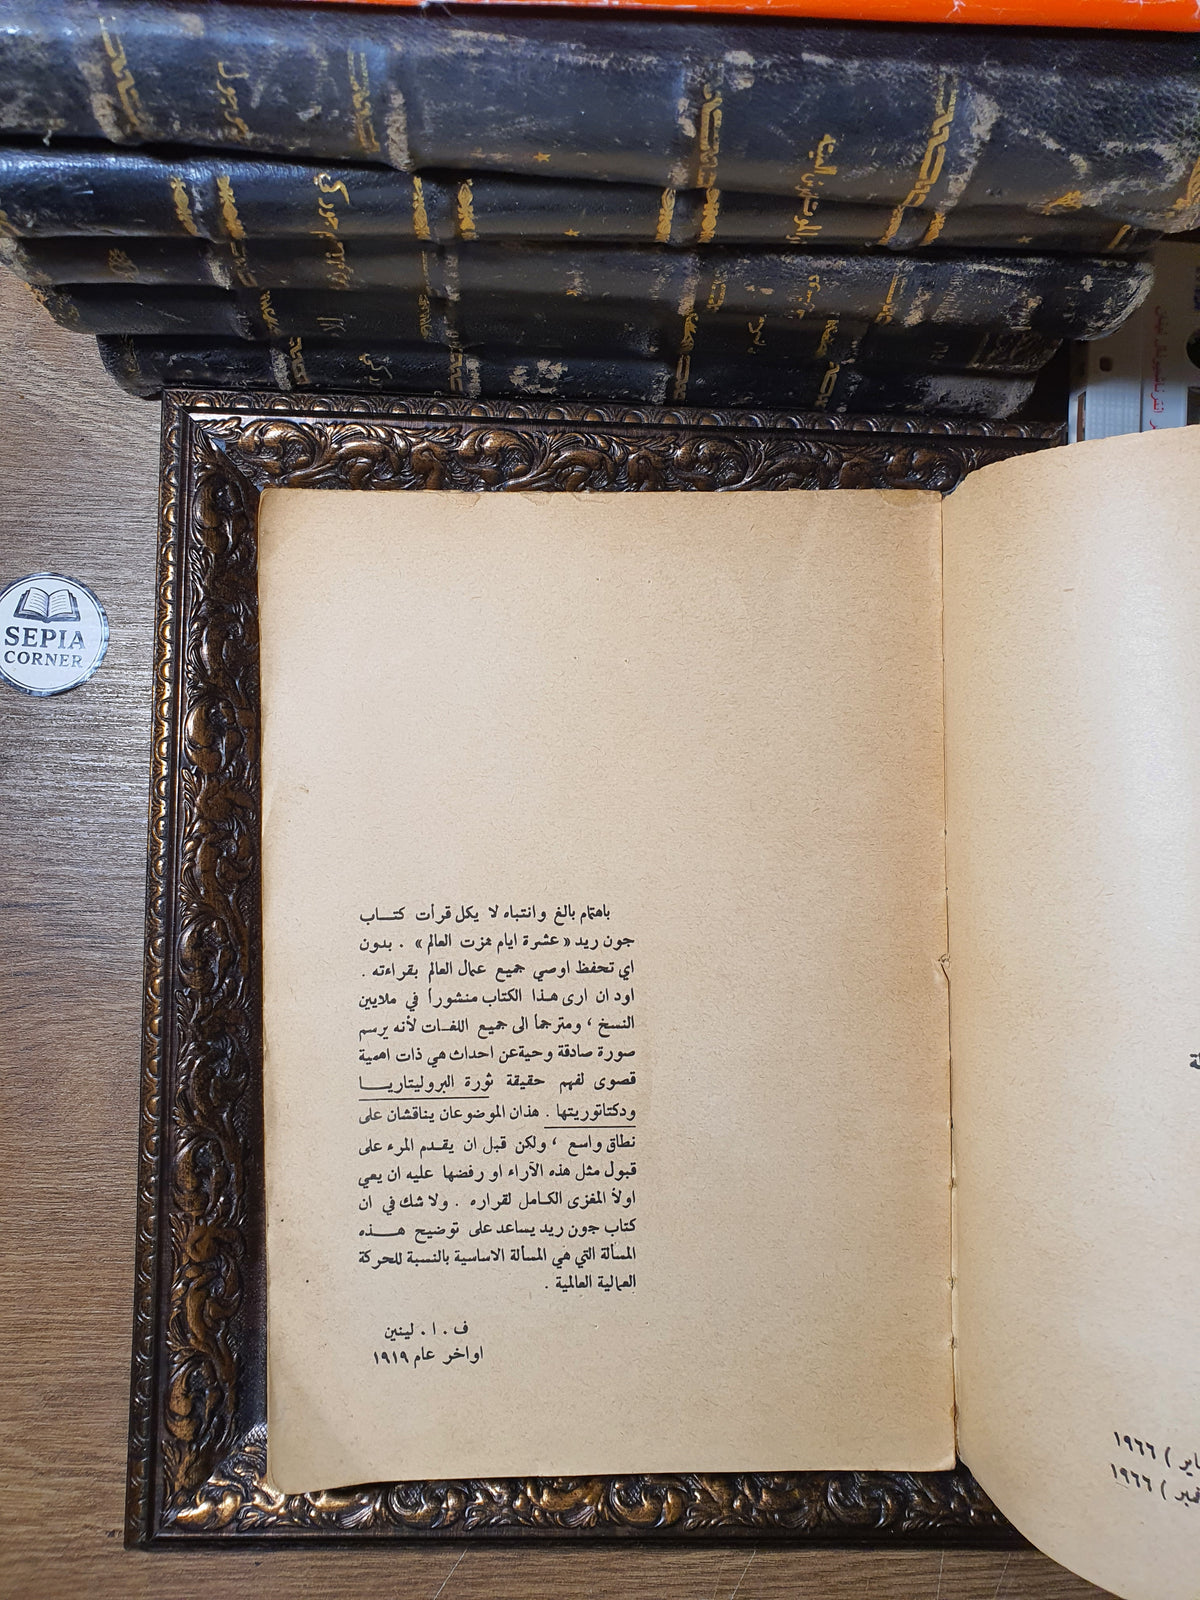 باهتمام بالغ وانتباه لا يكل قرأت كتـــاب
جون ريد « عشرة ايام هزت العالم » . بدون
اي تحفظ اوصي جميع عمال العالم بقراءته .
اود ان ارى هـذا الكتاب منشوراً في ملايين
النسخ ، ومترجماً الى جميع اللغـات لأنه يرسم
صورة صادقة وحية عن احداث هي ذات اهمية
قصوى لفهم حقيقة ثورة البروليتاريـــا
ودكتاتوريتها . هذان الموضوعان يناقشان على
نطاق واسع ، ولكن قبل ان يقـدم المرء على
قبول مثل هذه الآراء او رفضها عليه ان يعي
اولاً المغزى الكـامل لقراره . ولا شك في ان
كتاب جون ريد يساعد على توضيح هـــذه
المسألة التي هي المسألة الاساسية بالنسبة للحركة
العمالية العالمية .
ف . ا . لينين
اواخر عام ١٩١٩
SEPIA
CORNER
ـاير ) ١٩٦٦
ـبر ) ١٩٦٦